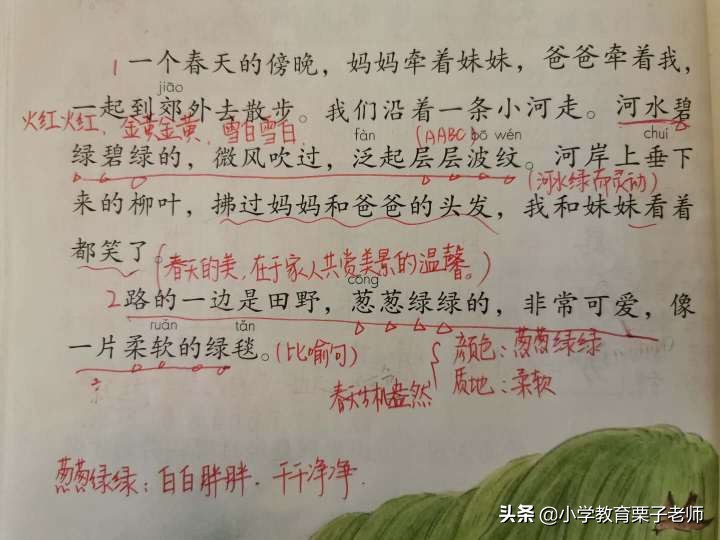 1 一个春天的傍晚，妈妈牵着妹妹，爸爸牵着我，
jiāo
一起到郊外去散步。我们沿着一条小河走。河水碧
火红火红、金黄金黄、雪白雪白
fàn (AABC) bō wén chuí
绿碧绿的，微风吹过，泛起层层波纹。河岸上垂下
(河水绿而灵动)
来的柳叶，拂过妈妈和爸爸的头发，我和妹妹看着
都笑了
(春天的美，在于家人共赏美景的温馨。)
cōng
2 路的一边是田野，葱葱绿绿的，非常可爱，像
ruǎn tǎn
一片柔软的绿毯。(比喻句)
颜色：葱葱绿绿
春天生机盎然
质地：柔软
葱葱绿绿：白白胖胖、干干净净
头条 @小学教育栗子老师